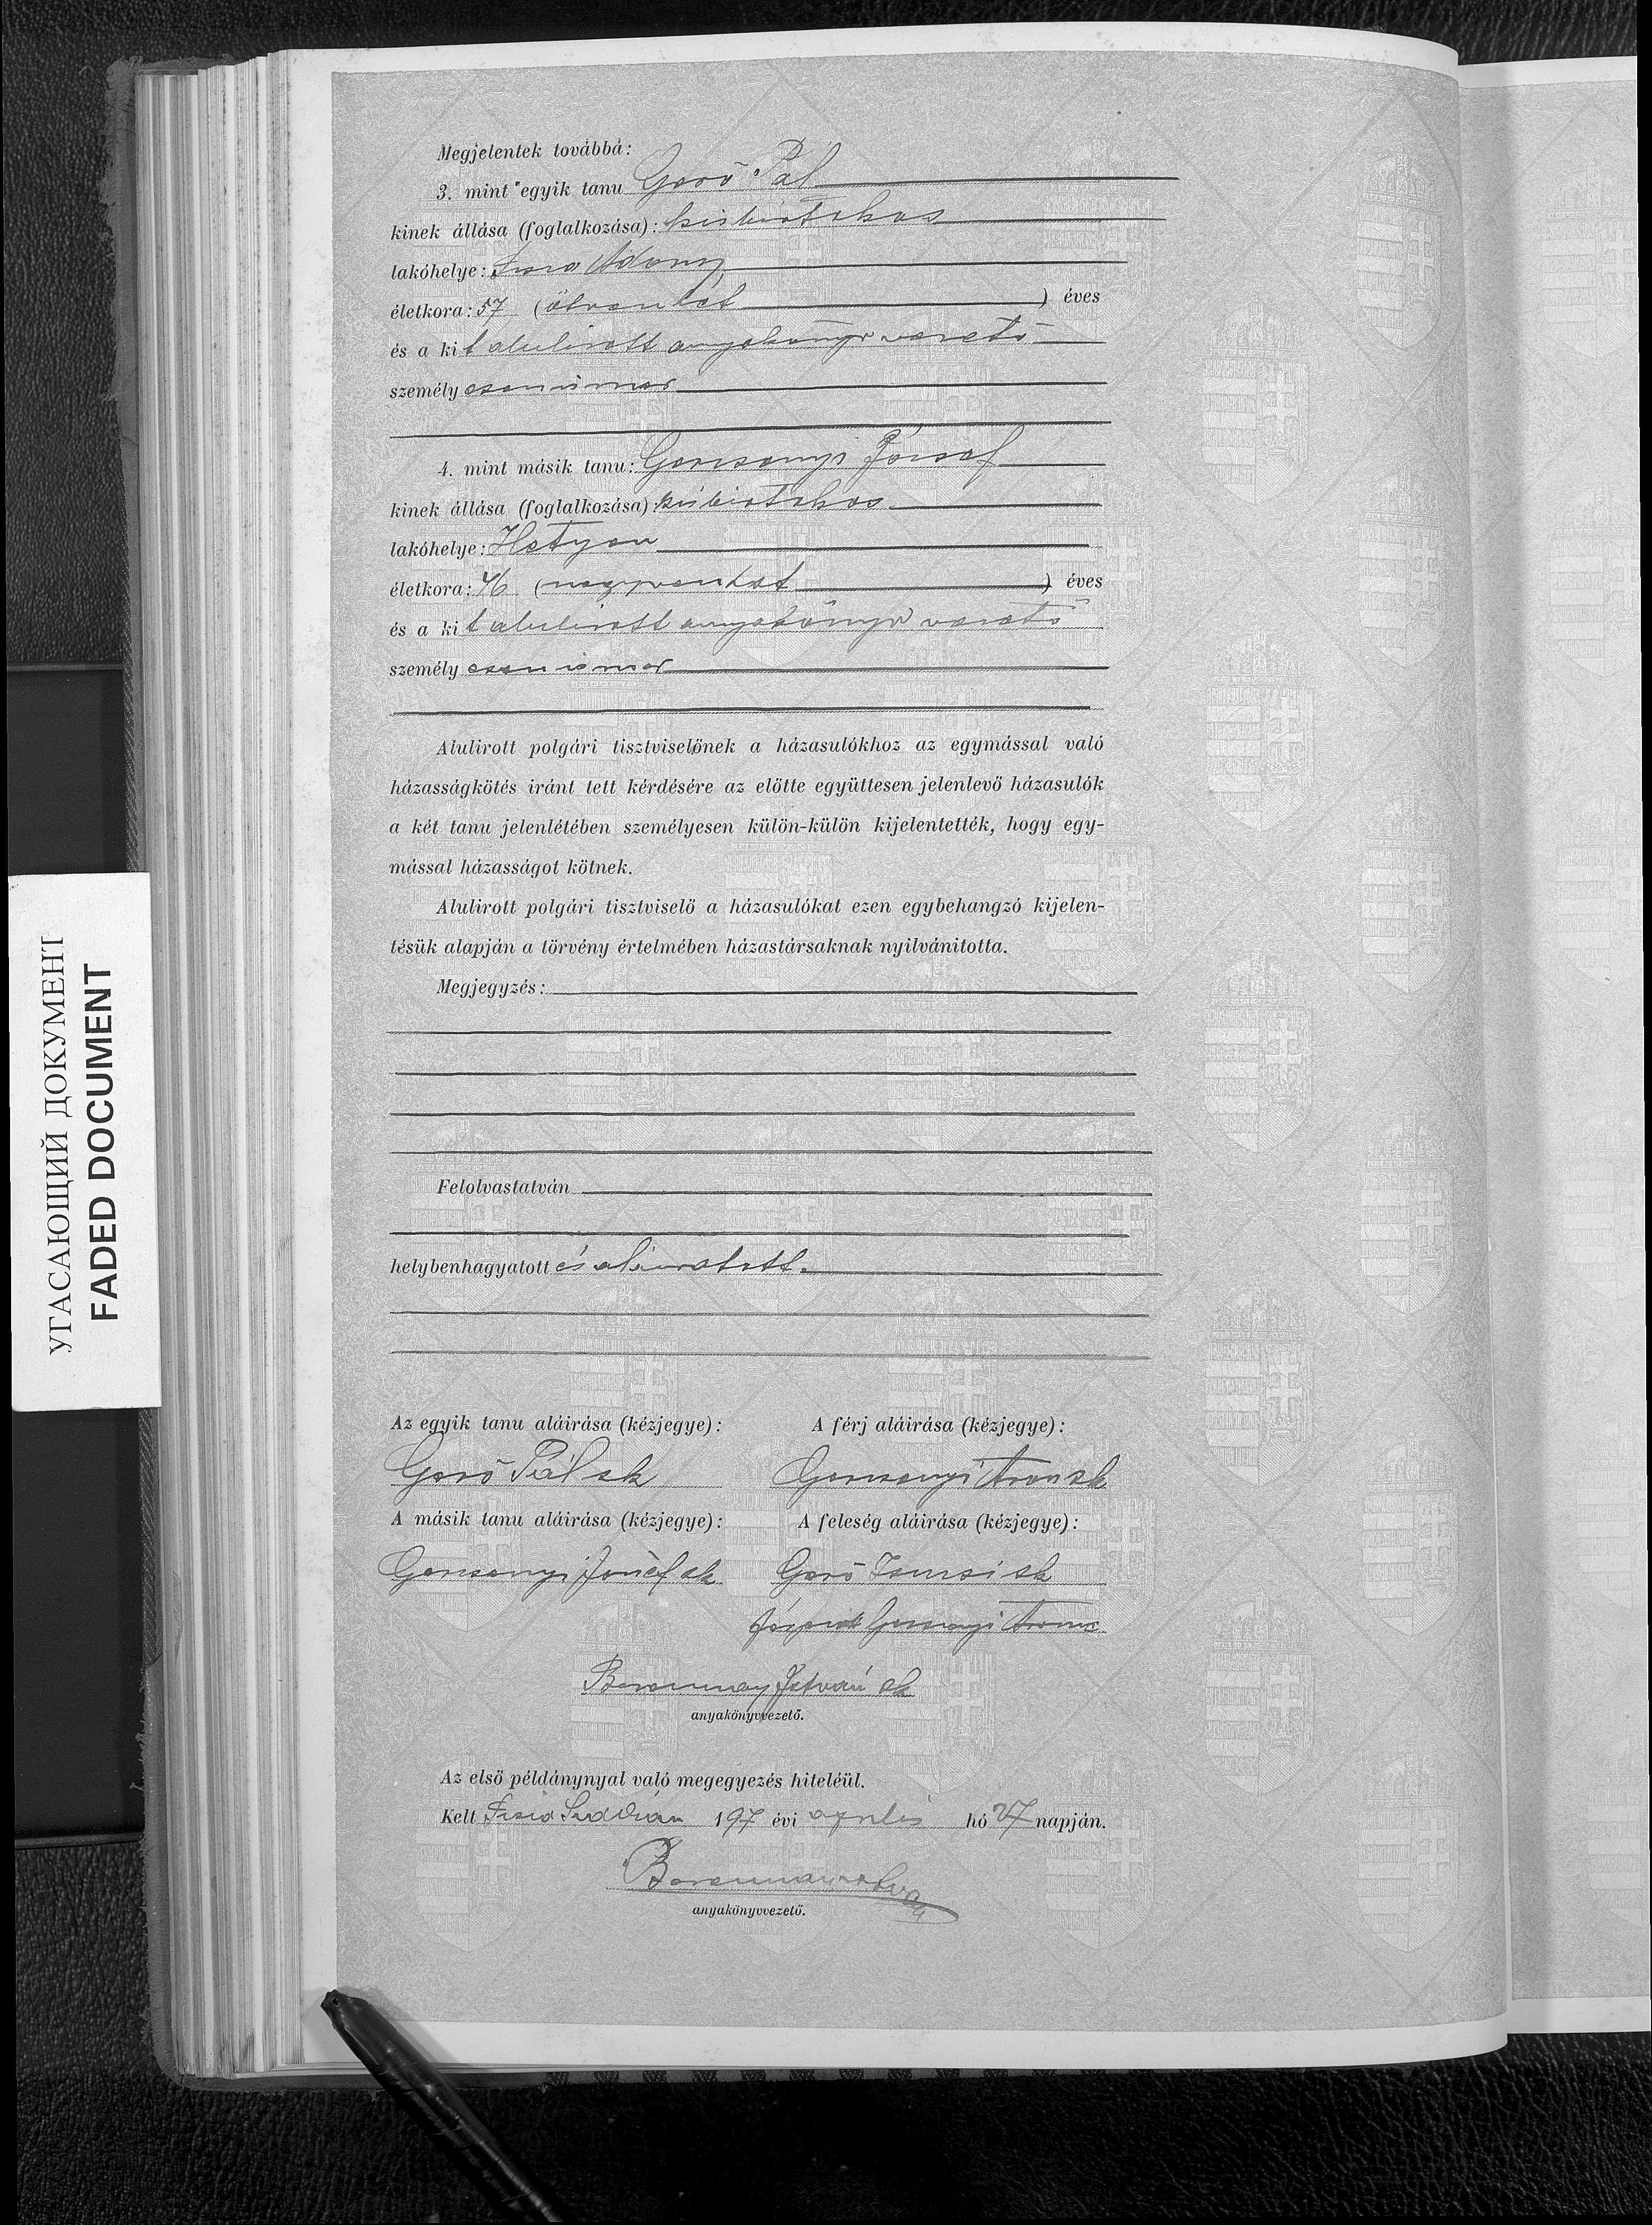 Megjelentek továbbá:
3. mint egyik tanu Gerő Pál
kinek állása (foglalkozása): kisbirtokos
lakóhelye: Tisza Adony
életkora: 57 (ötvenhét) éves
és a kit alulirott anyakönyvvezető
személyesen ismer
4. mint másik tanu: Gercsenyi József
kinek állása (foglalkozása): kisbirtokos
lakóhelye: Hetyen
életkora: 46 (negyvenhat) éves
és a kit alulirott anyakönyvvezető
személyesen ismer
Alulirott polgári tisztviselőnek a házasulókhoz az egymással való
házasságkötés iránt tett kérdésére az előtte együttesen jelenlevő házasulók
a két tanu jelenlétében személyesen külön-külön kijelentették, hogy egy-
mással házasságot kötnek.
Alulirott polgári tisztviselő a házasulókat ezen egybehangzó kijelen-
tésük alapján a törvény értelmében házastársaknak nyilvánitotta.
Megjegyzés:
Felolvastatván
helybenhagyatott és aláiratott.
Az egyik tanu aláirása (kézjegye): A férj aláirása (kézjegye):
Gerő Pál sk Gercsenyi Áron sk
A másik tanu aláirása (kézjegye): A feleség aláirása (kézjegye):
Gercsenyi József sk Gerő sk
Gercsenyi Áronné
István sk
anyakönyvvezető.
Az első példánynyal való megegyezés hiteléül.
Kelt Tisza 197 évi április hó 27 napján.
anyakönyvvezető.
УГАСАЮЩИЙ ДОКУМЕНТ
FADED DOCUMENT